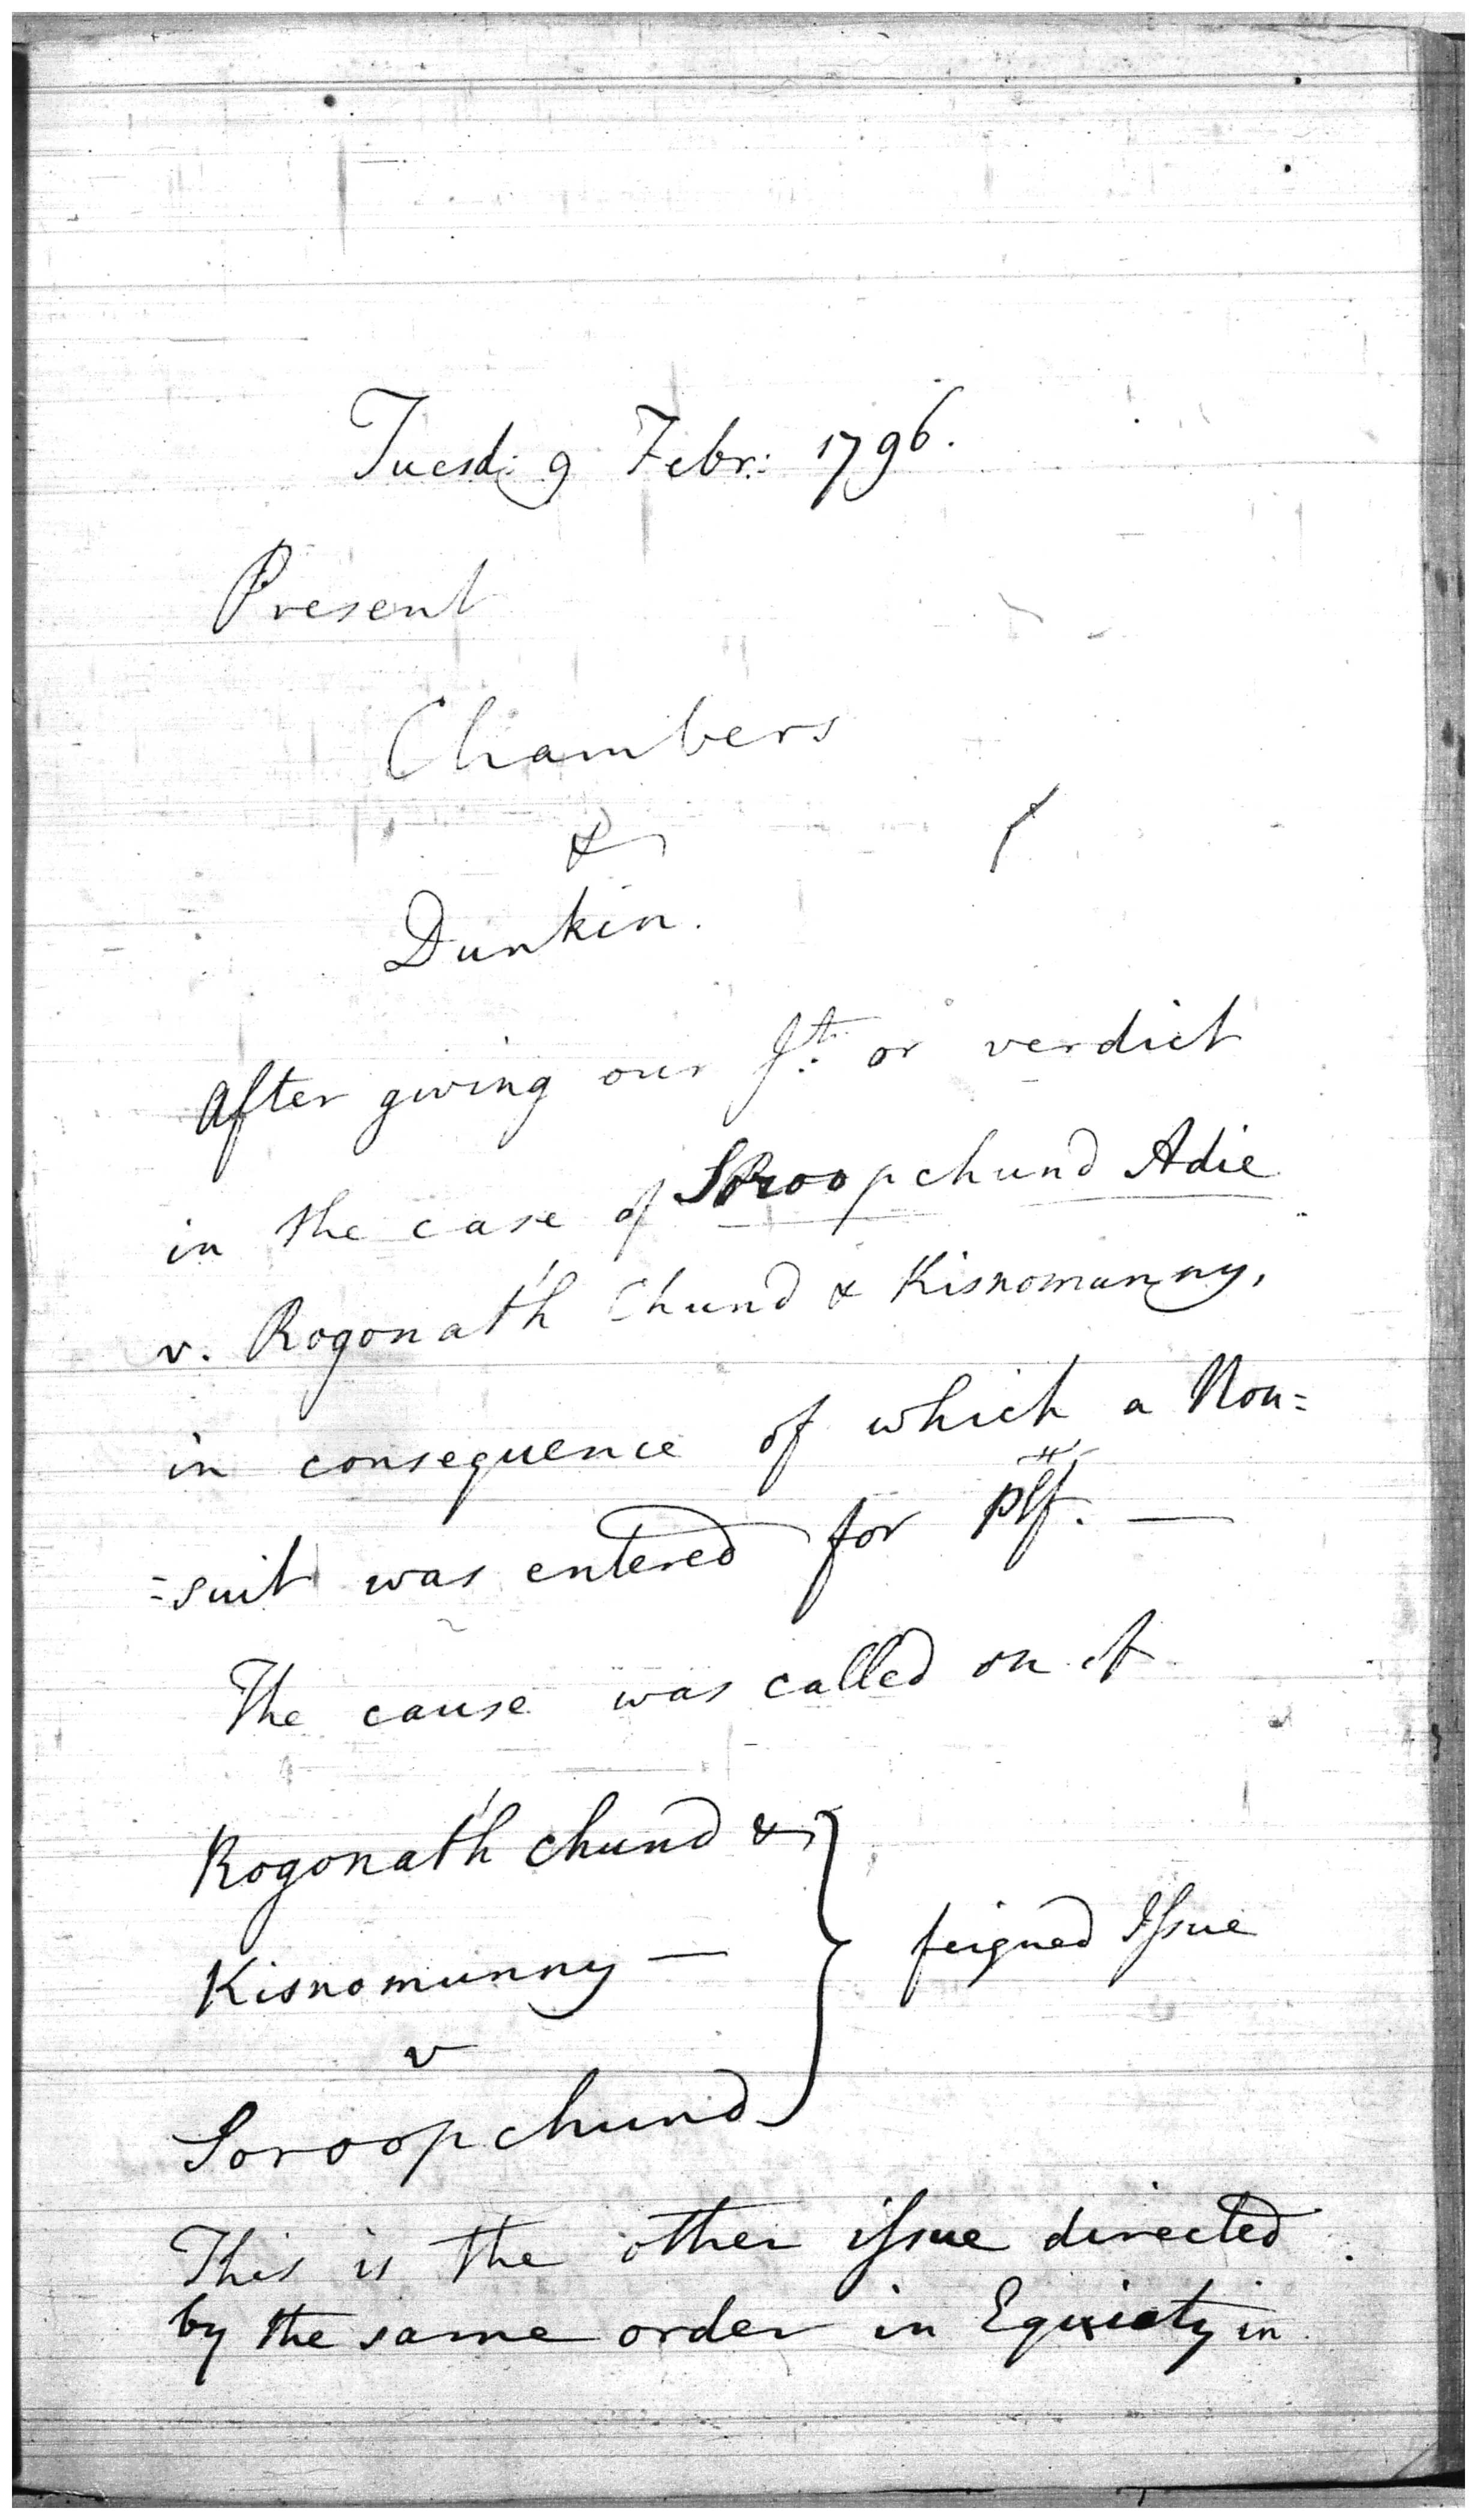 Tuesd: 9 Febr: 1796.
Present
Chambers
&
Dunkin.
After giving our Jt. or verdict
in the case of Soroopchund Adie
v. Rogonath Chund & Kisnomunny,
in consequence of which a Non=
=suit was entered for plf. —
The cause was called on of
Rogonath Chund &
Kisnomunny —
v
Soroopchund
feigned Issue
This is the other issue directed
by the same order in Equity in